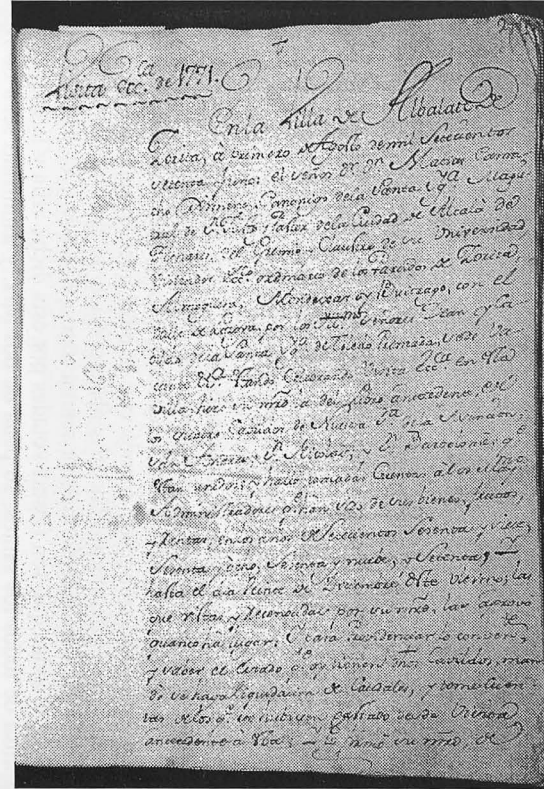 Visita ecc.ca de 1771.
En la Villa de Albalate de
Zorita, à primero de Agosto de mil Setecientos
setenta y uno: el Señor Dr. Dn. Macias
Canonigo de la Santa Yg.a Magis
tral de Sn. Justo y Pastor de la Ciudad de Alcalà de
Henares, del Gremio y Claustro de su Universidad,
Visitador ecc.co ordinario de los Partidos de Zorita,
Almoguera, Mondexar y Buitrago, con el
Valle de Lozoya, por los Yll.mos Señores Dean y Ca
bildo de la Santa Yg.a de Toledo Primada, sede va
cante &.a estando celebrando visita ecc.ca en esta
villa hizo su mrd. la del libro antecedente, de
los quatro Cavildos de Nuestra S.ra de la
Sn. Nicolàs, y Sn. Bartolomè, q.e
estan unidos; y haviendo tomadas Cuentas à los
Administradores q.e han sido de sus bienes, frutos,
y Rentas, en los años de Setecientos Sesenta y siete,
Sesenta y ocho, Sesenta y nueve, y Setenta,
hasta el dia veinte de Diciembre de el; las
que vistas, y reconocidas por su mrd., las aprovò
quanto hà lugar; y para Providenciar lo conven.te
y saber el estado q.e oy tienen dhos Cavildos, man
dò se haga liquidacion de Caudales, y tome Cuen
tas de los q.e
antecedente à esta; firmò su mrd., de